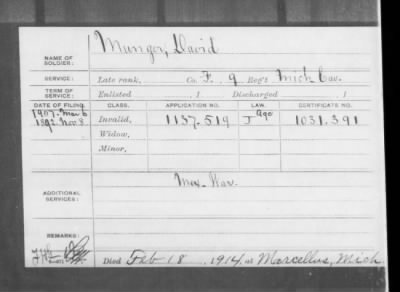 NAME OF SOLDIER: Munger, David
SERVICE: Late rank, Co. F. 9 Reg't Mich Cav.
TERM OF SERVICE: Enlisted , 1 Discharged , 1
DATE OF FILING. CLASS. APPLICATION NO. LAW. CERTIFICATE NO.
1907. Mar 6
1892 Nov 8 Invalid, 1137.519 J Age 1031.391
Widow,
Minor,
ADDITIONAL SERVICES: Mex. War.
REMARKS:
Died Feb 18 , 1914, at Marcellus, Mich